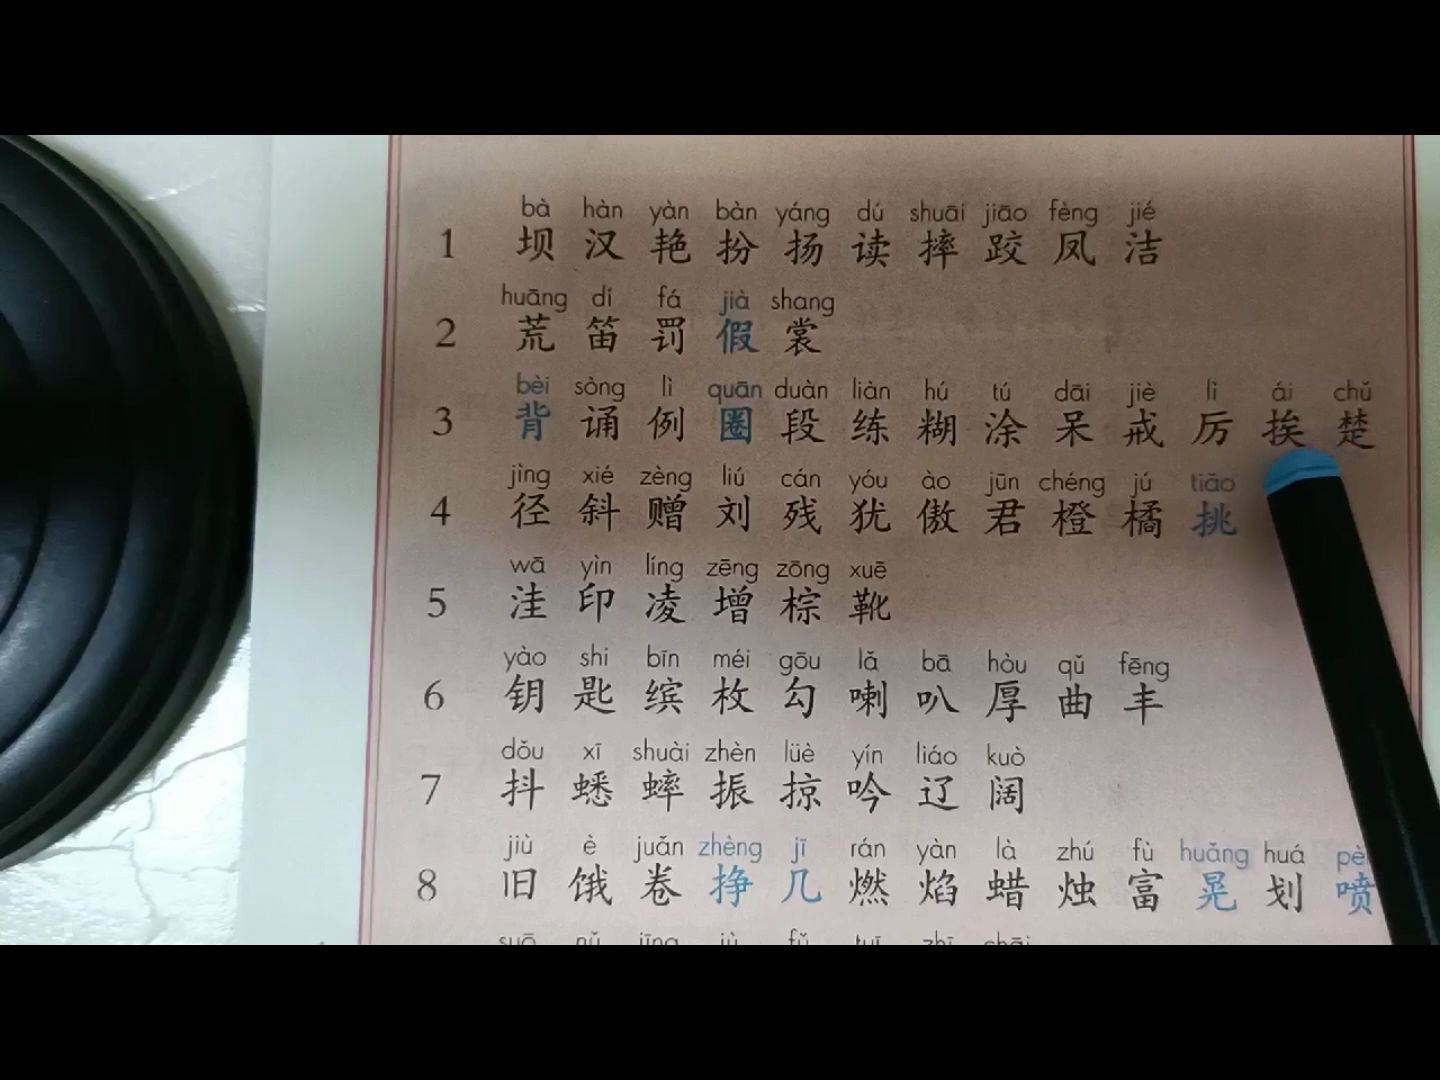 bà hàn yàn bàn yáng dú shuāi jiāo fèng jié
1 坝 汉 艳 扮 扬 读 摔 跤 凤 洁
huāng dí fá jià shang
2 荒 笛 罚 假 裳
bèi sòng lì quān duàn liàn hú tú dāi jiè lì ái chǔ
3 背 诵 例 圈 段 练 糊 涂 呆 戒 厉 挨 楚
jìng xié zèng liú cán yóu ào jūn chéng jú tiāo
4 径 斜 赠 刘 残 犹 傲 君 橙 橘 挑
wā yìn líng zēng zōng xuē
5 洼 印 凌 增 棕 靴
yào shi bīn méi gōu lǎ bā hòu qǔ fēng
6 钥 匙 缤 枚 勾 喇 叭 厚 曲 丰
dǒu xī shuài zhèn lüè yín liáo kuò
7 抖 蟋 蟀 振 掠 吟 辽 阔
jiù è juǎn zhèng jī rán yàn là zhú fù huǎng huá
8 旧 饿 卷 挣 几 燃 焰 蜡 烛 富 晃 划 喷